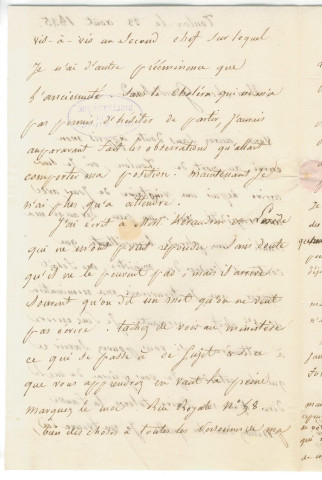 Toulon le 23 août 1835
vis-à-vis un second chef sur lequel
Je n'ai d'autre prééminence que
l'ancienneté. Sans le choléra qui ne m'a
pas permis d'hésiter de partir, J'aurais
auparavant fait les observations qu'allait
comporter ma position. maintenant je
n'ai plus qu'à attendre.
J'ai écrit à MM. Kéraudren
qui ne m'ont point répondu sans doute
qu'ils ne le peuvent pas, mais il arrive
souvent qu'on dit un mot qu'on ne veut
pas écrire. tachez de voir au ministère
ce qui se passe à ce sujet et si ce
que vous apprendrez en vaut la peine
marquez le moi Rue Royale N° 58.
bien des choses à toutes les personnes de ma